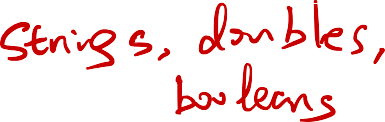 Strings, doubles,
booleans